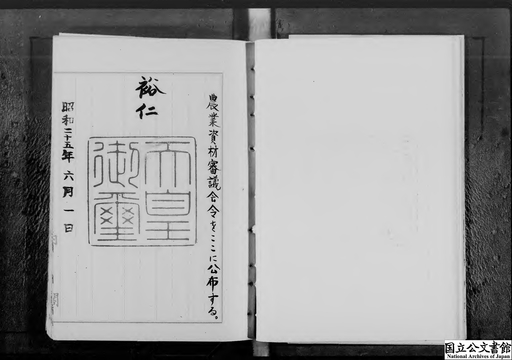 農業資材審議会令をここに公布する。
裕仁
天皇
御璽
昭和二十五年六月一日
国立公文書館
National Archives of Japan